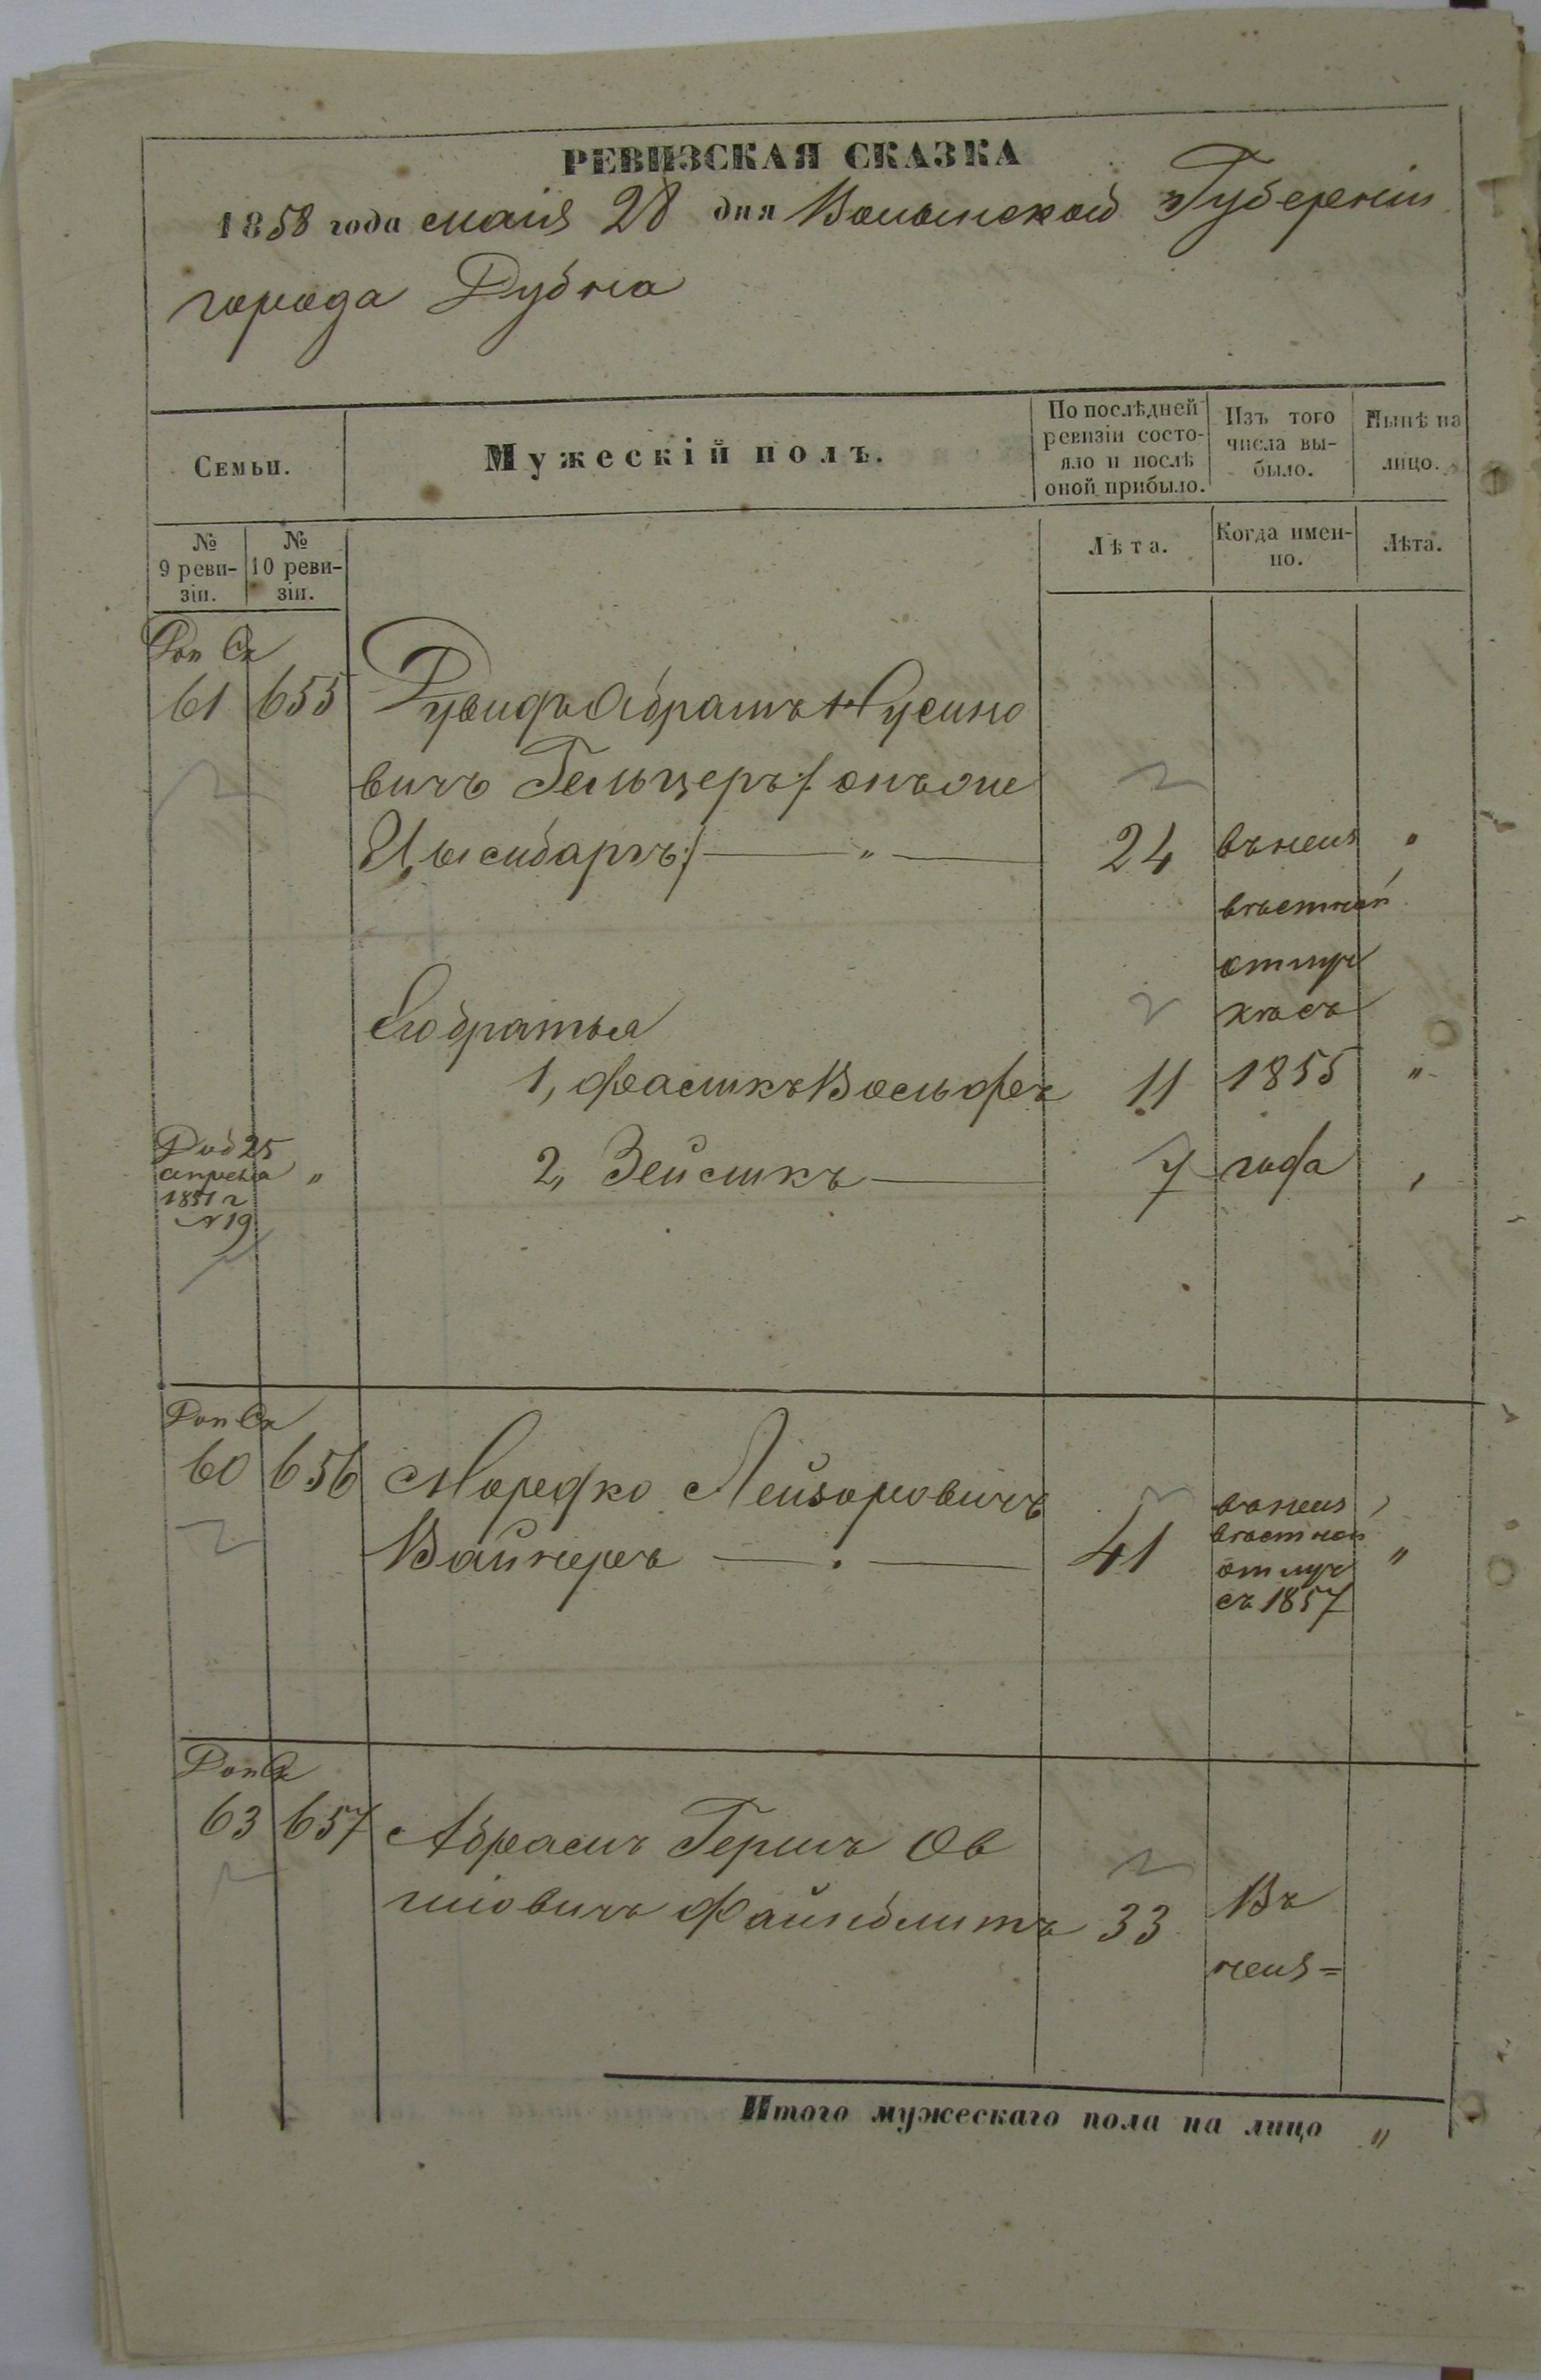 РЕВИЗСКАЯ СКАЗКА
1858 года маія 28 дня Волынской Губерніи
города Дубна
Семьи.
Мужескій полъ.
По послѣдней ревизіи состояло и послѣ оной прибыло.
Изъ того числа выбыло.
Нынѣ на лицо.
№ 9 ревизіи.
№ 10 ревизіи.
Лѣта.
Когда именно.
Лѣта.
Доп Ск
61 655 Абрамъ Нусино
вичъ Гельцеръ /: онъ же
Цысибаръ :/ — " — 24 въ неиз
вѣстной
отлуч
кѣ съ
Его братья
1, Вольфъ 11 1855 "
Доп 25
апрѣля "
1851 г
№ 19
2, Зейликъ — 7 года
Доп Ск
60 656 Мордко Лейзоровичъ
Вайнеръ — 41 въ неиз
вѣстной
отлуч "
съ 1857
Доп Ск
63 657 Абрамъ Гершъ Ов
шіовичъ Файнблитъ 33 Въ
неиз=
Итого мужескаго пола на лицо "